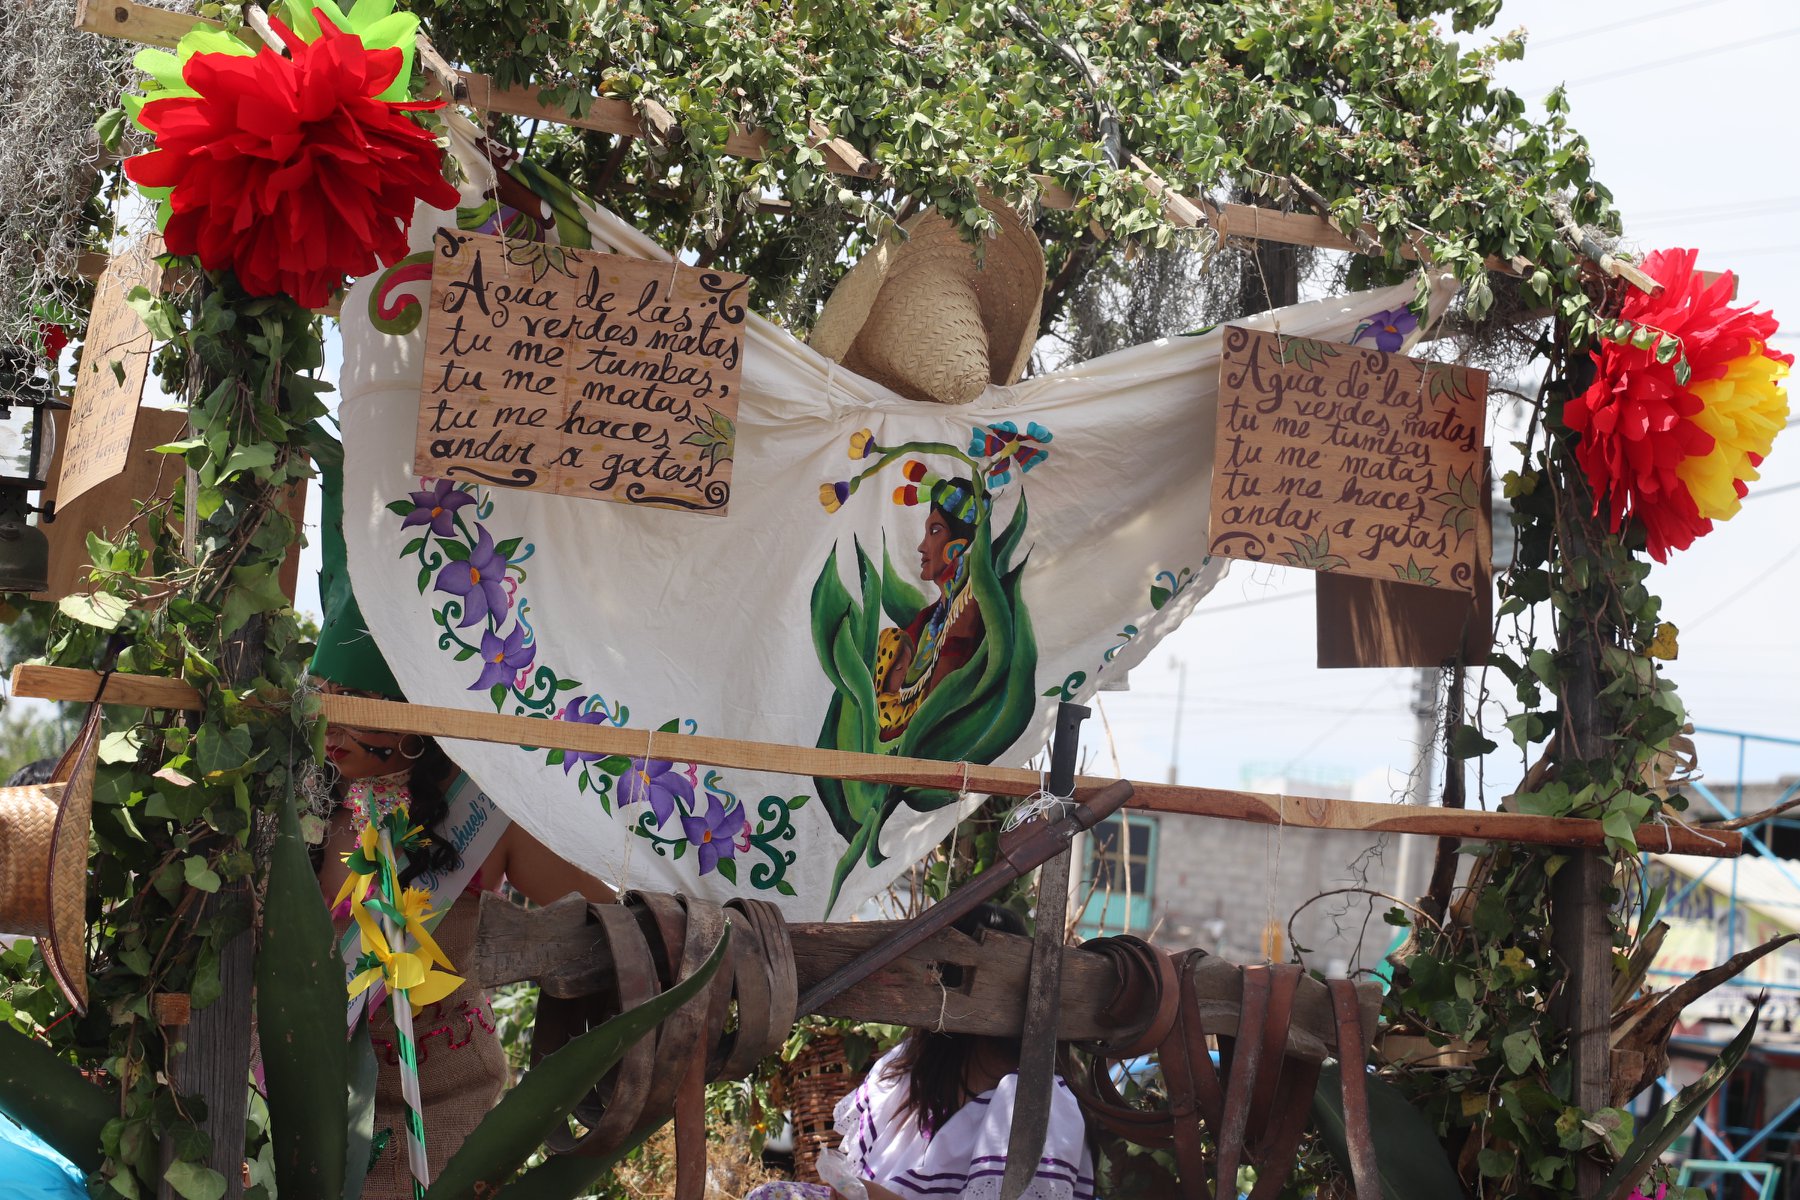 Agua de las
verdes matas
tu me tumbas,
tu me matas
tu me haces
andar a gatas
Agua de las
verdes matas
tu me tumbas
tu me matas
tu me haces
andar a gatas